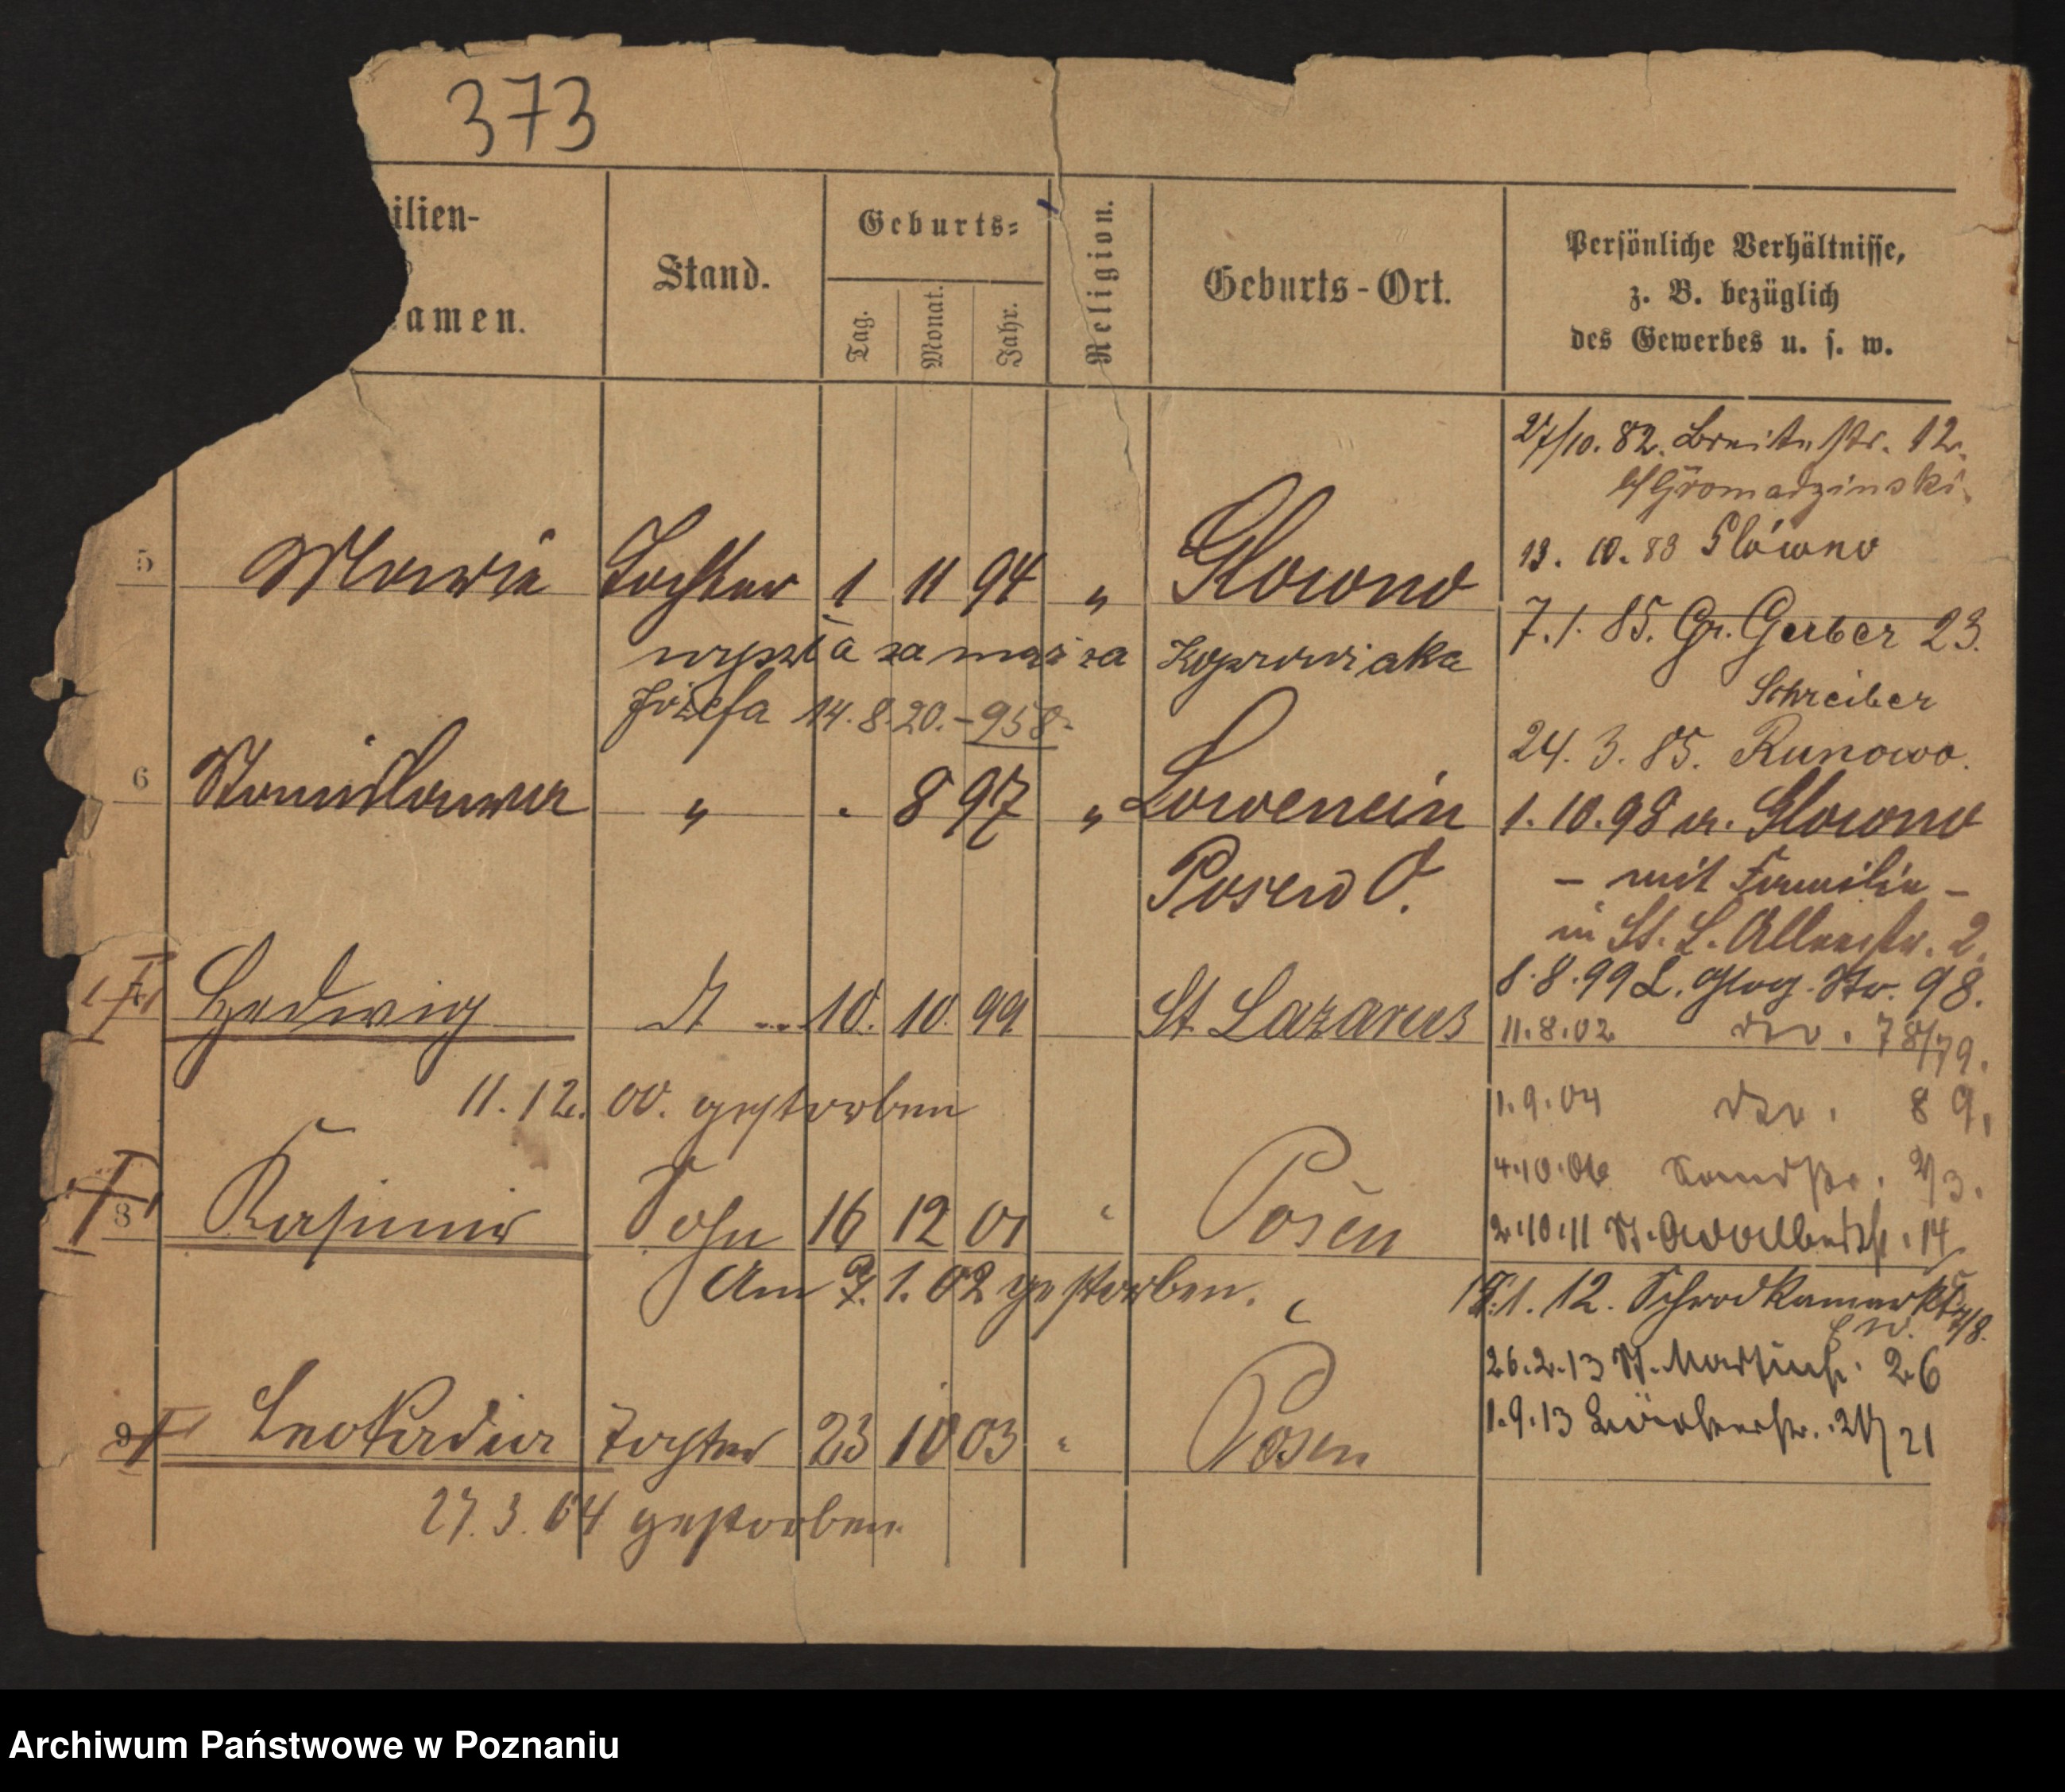 373
ilien-
amen.
Stand.
Geburts-
Tag.
Monat.
Jahr.
Religion.
Geburts-Ort.
Persönliche Verhältnisse,
z. B. bezüglich
des Gewerbes u. s. w.
27/10. 82. Breitestr. 12.
b/Gromadzinski.
13. 10. 83 Glówno
5 Marie Tochter 1 11 94 " Glowno
7.1. 85. Gr. Gerber 23.
wyszła za mąż za Koprowiaka
Schreiber
Józefa 14.8.20. - 958
24. 3. 85. Runowo.
6 Stanislawa " . 8 97 "
1. 10. 98 Glowno
Posen O.
- mit Familie -
in St. L. 2.
7 Hedwig 10. 10. 99 St Lazarus
8.8.99 L. Glog. Str. 98.
11.8.02 78/79.
11. 12. 00. gestorben
1.9.04 89.
8 Kasimir Sohn 16 12 01 " Posen
4.10.06
2.10.11 St. Adalbertstr. 14
Am 7. 1. 02 gestorben.
1.12. Schrodkamarkt 7/8.
26.2.13 St. Martinstr. 26
9 Leokadia Tochter 23 10 03 " Posen
1.9.13 21
27. 3. 04 gestorben
Archiwum Państwowe w Poznaniu